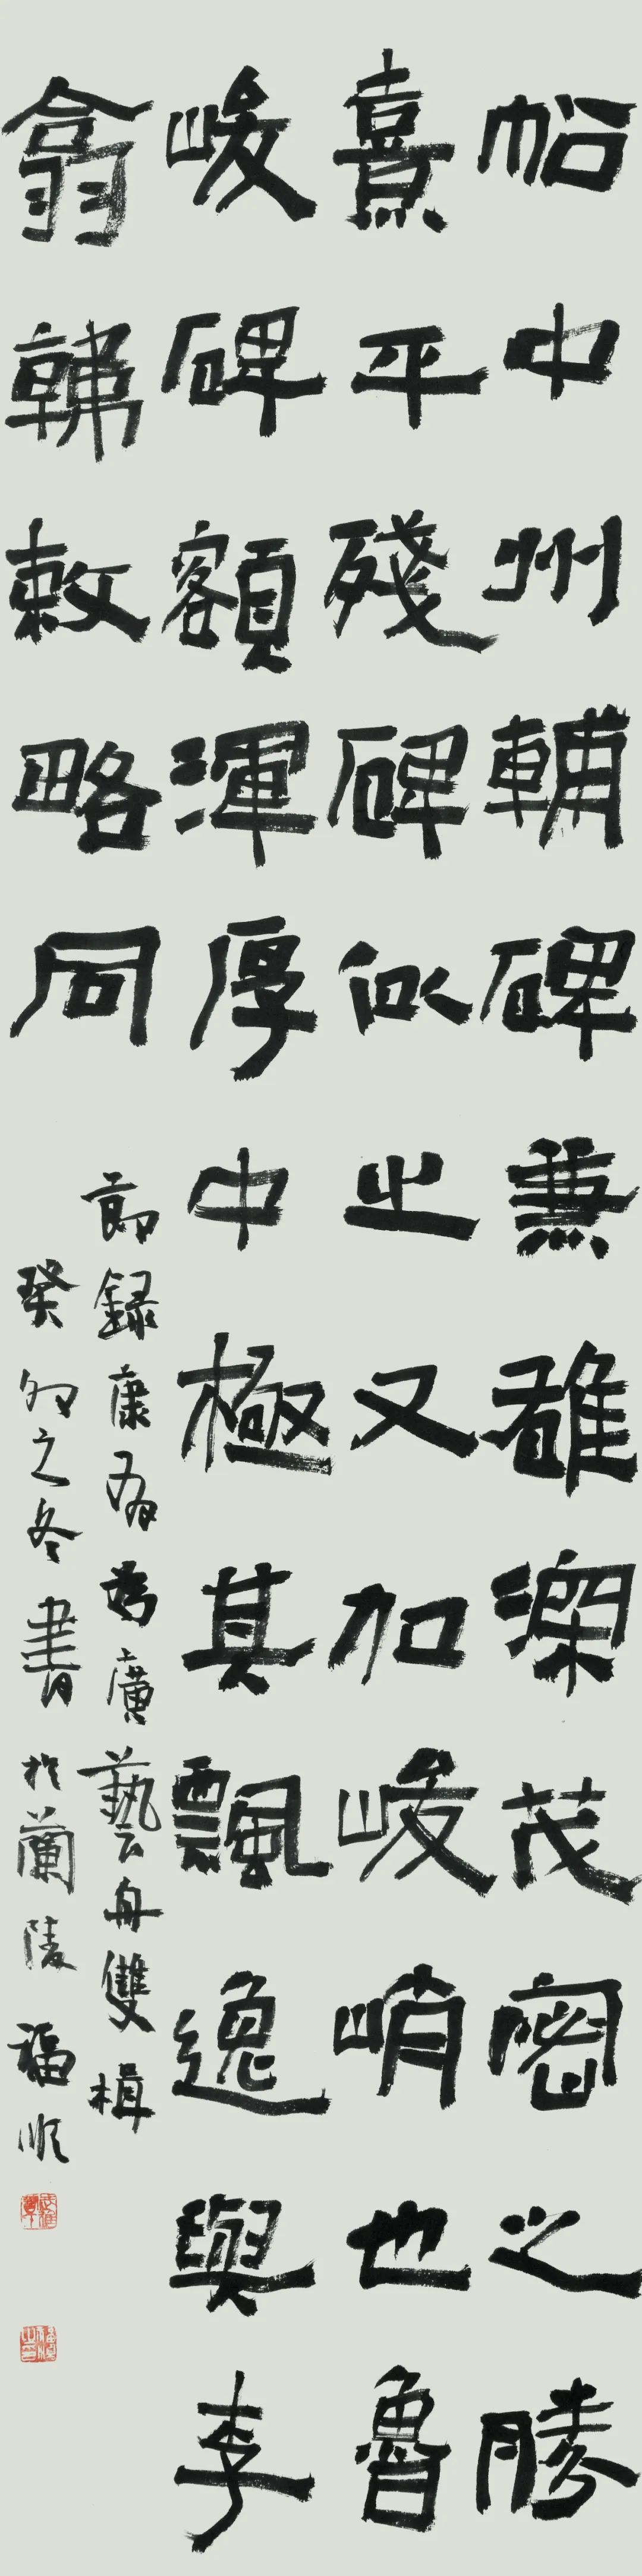 帖中州輔碑兼雄深茂密之勝
熹平殘碑似之又加峻峭也魯
峻碑額渾厚中極其飄逸與李
翕韓敕略同
節録康有為廣藝舟雙楫
癸卯之冬書於蘭陵福順